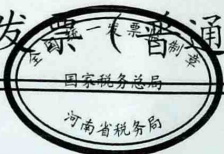 发票(普通
全国统一发票监制章
国家税务总局
河南省税务局